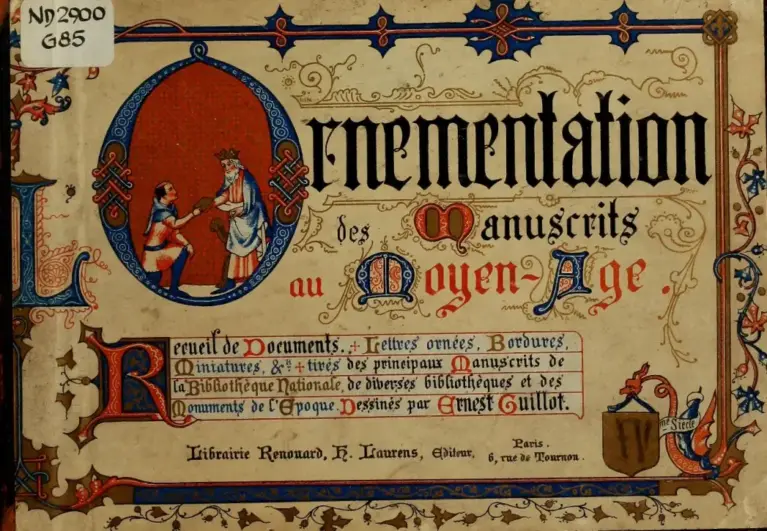 ND2900
G85
L Ornementation
des Manuscrits
au Moyen-Age.
Recueil de Documents, + Lettres ornées, Bordures,
Miniatures, &a + tirés des principaux Manuscrits de
la Bibliothèque Nationale, de diverses bibliothèques et des
Monuments de l'Epoque. Dessinés par Ernest Guillot.
me Siècle
Librairie Renouard, H. Laurens, Editeur, Paris.
6, rue de Tournon.